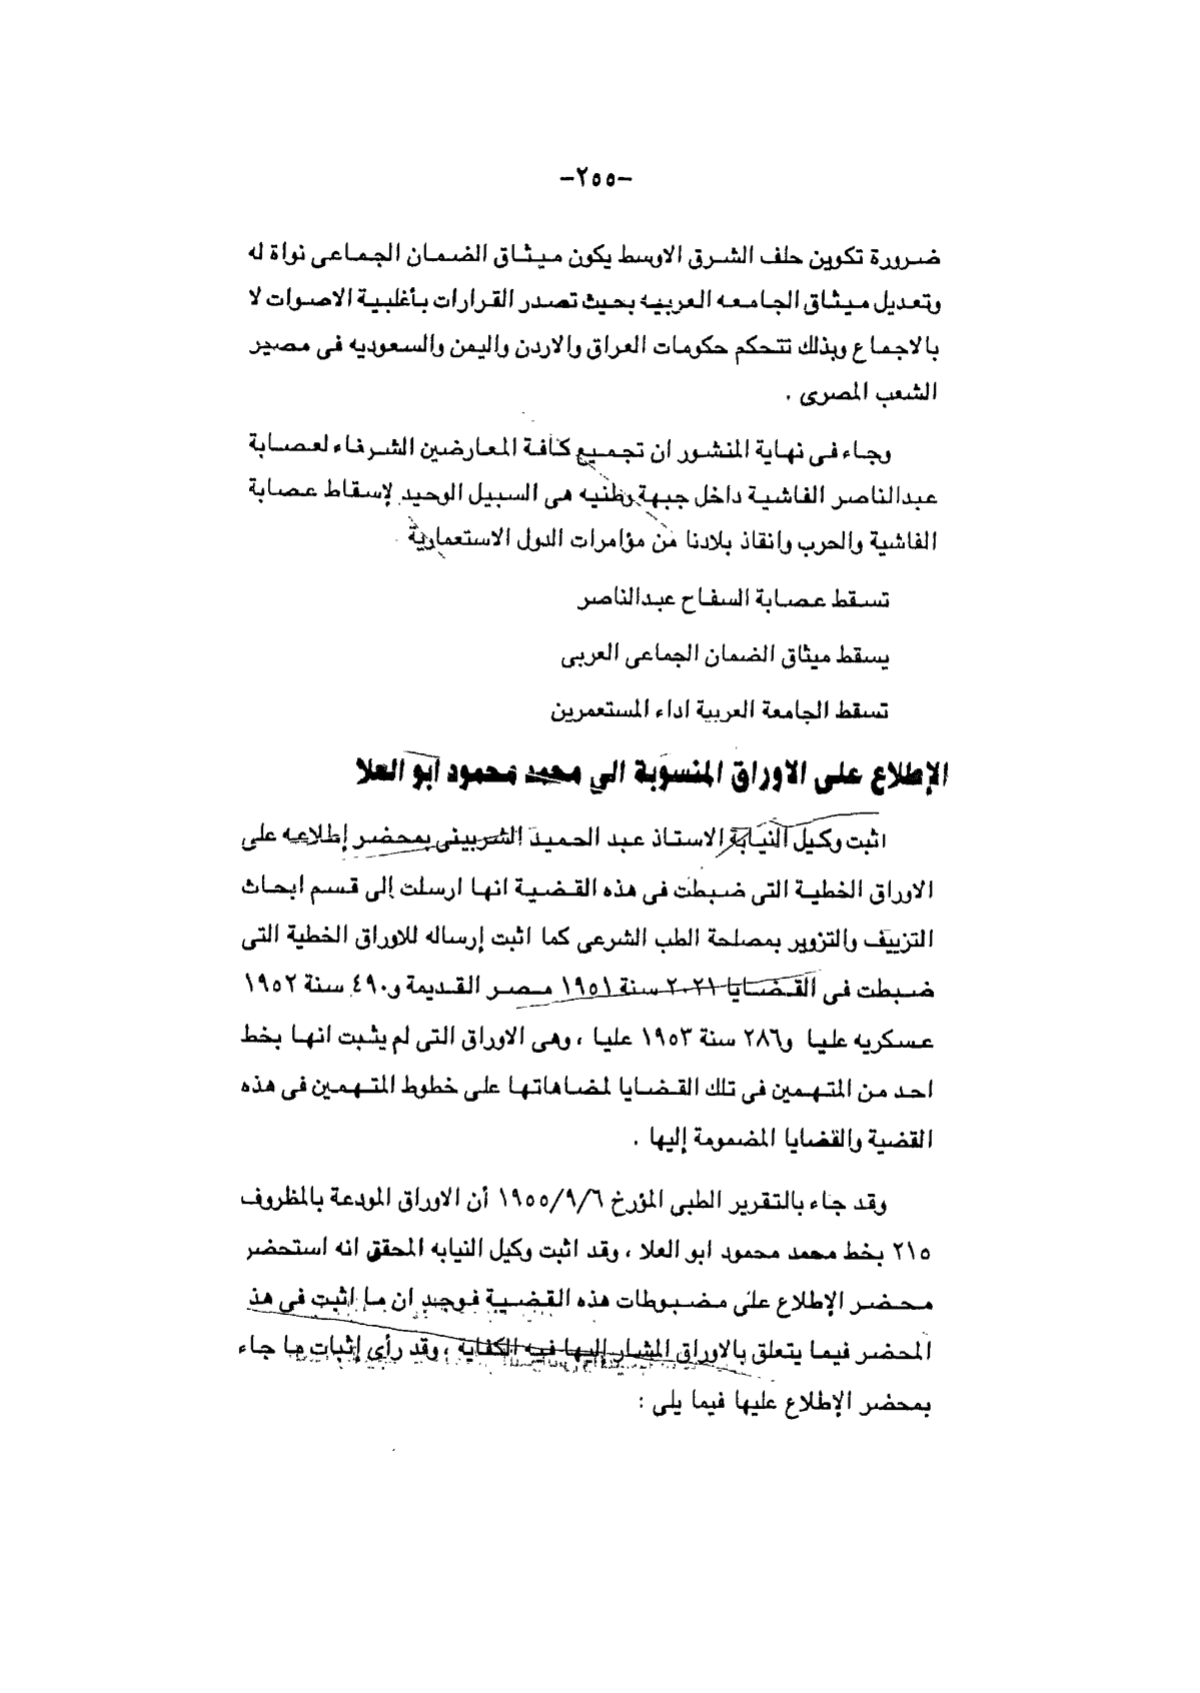 -٢٥٥-
ضرورة تكوين حلف الشرق الاوسط يكون ميثاق الضمان الجماعى نواة له
وتعديل ميثاق الجامعه العربيه بحيث تصدر القرارات بأغلبية الاصوات لا
بالاجماع وبذلك تتحكم حكومات العراق والاردن واليمن والسعوديه فى مصير
الشعب المصرى .
وجاء فى نهاية المنشور ان تجميع كافة المعارضين الشرفاء لعصابة
عبدالناصر الفاشية داخل جبهة وطنيه هى السبيل الوحيد لإسقاط عصابة
الفاشية والحرب وانقاذ بلادنا من مؤامرات الدول الاستعمارية
تسقط عصابة السفاح عبدالناصر
يسقط ميثاق الضمان الجماعى العربى
تسقط الجامعة العربية اداء المستعمرين
الإطلاع على الاوراق المنسوبة الي محمد محمود ابو العلا
اثبت وكيل النيابة الاستاذ عبد الحميد الشربينى بمحضر إطلاعه على
الاوراق الخطية التى ضبطت فى هذه القضية انها ارسلت إلى قسم ابحاث
التزييف والتزوير بمصلحة الطب الشرعى كما اثبت إرساله للاوراق الخطية التى
ضبطت فى القضايا ٢٠٢١ سنة ١٩٥١ مصر القديمة و٤٩٠ سنة ١٩٥٢
عسكريه عليا و٢٨٦ سنة ١٩٥٣ عليا ، وهى الاوراق التى لم يثبت انها بخط
احد من المتهمين فى تلك القضايا لمضاهاتها على خطوط المتهمين فى هذه
القضية والقضايا المضمومة إليها .
وقد جاء بالتقرير الطبى المؤرخ ١٩٥٥/٩/٦ أن الاوراق المودعة بالمظروف
٢١٥ بخط محمد محمود ابو العلا ، وقد اثبت وكيل النيابه المحقق انه استحضر
محضر الإطلاع على مضبوطات هذه القضية فوجد ان ما اثبت فى هذ
المحضر فيما يتعلق بالاوراق المشار إليها فيه الكفايه ، وقد رأى إثبات ما جاء
بمحضر الإطلاع عليها فيما يلى :